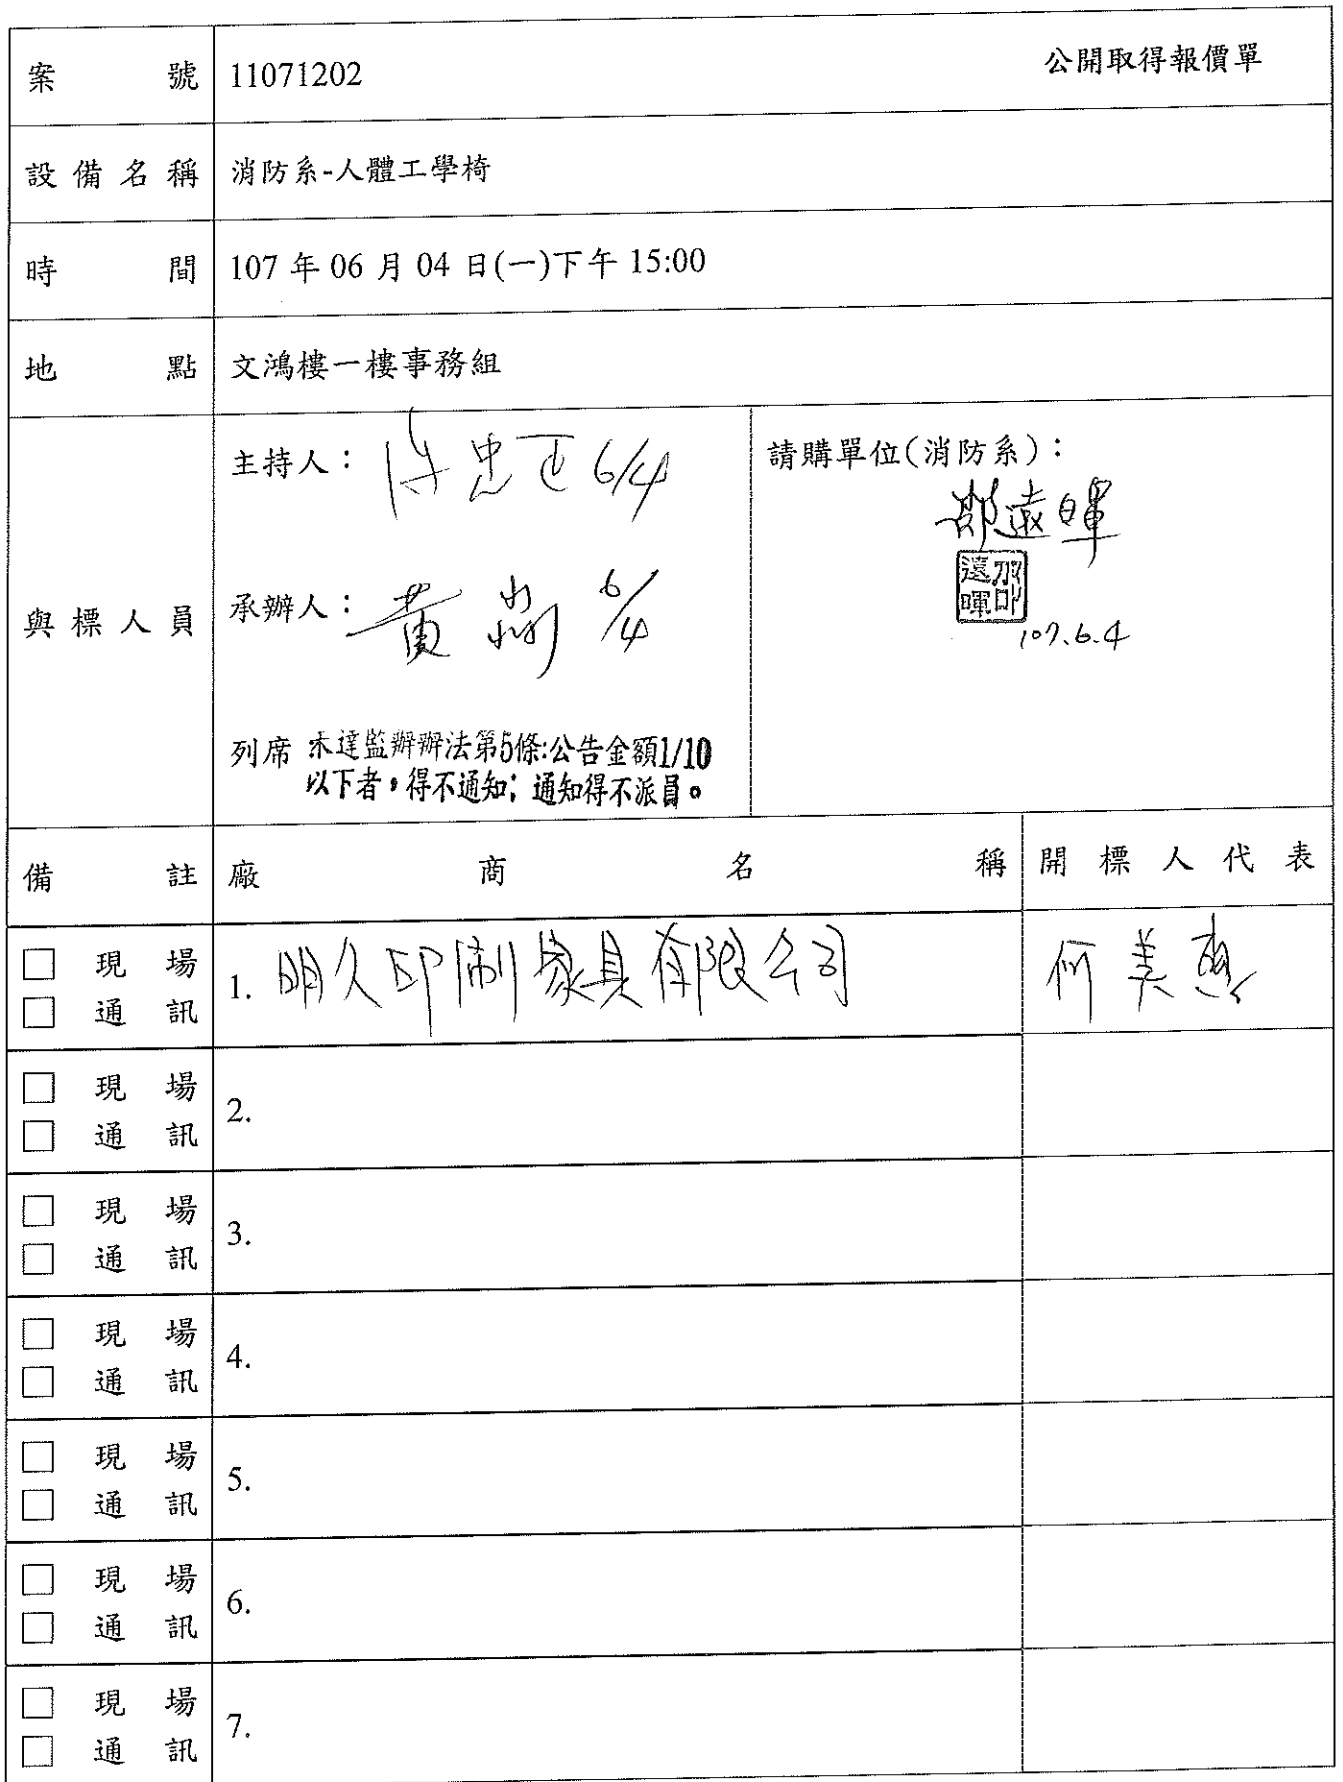 案號 11071202 公開取得報價單
設備名稱 消防系-人體工學椅
時間 107 年 06 月 04 日(一)下午 15:00
地點 文鴻樓一樓事務組
與標人員
主持人： 忠正 6/4
承辦人： 黃 6/4
列席 未達監辦辦法第5條:公告金額1/10
以下者，得不通知；通知得不派員。
請購單位(消防系)：
邵遠暉
邵遠暉
107.6.4
備註 廠商名稱 開標人代表
□ 現場
□ 通訊
1. 明久印制家具有限公司 何美惠
□ 現場
□ 通訊
2.
□ 現場
□ 通訊
3.
□ 現場
□ 通訊
4.
□ 現場
□ 通訊
5.
□ 現場
□ 通訊
6.
□ 現場
□ 通訊
7.